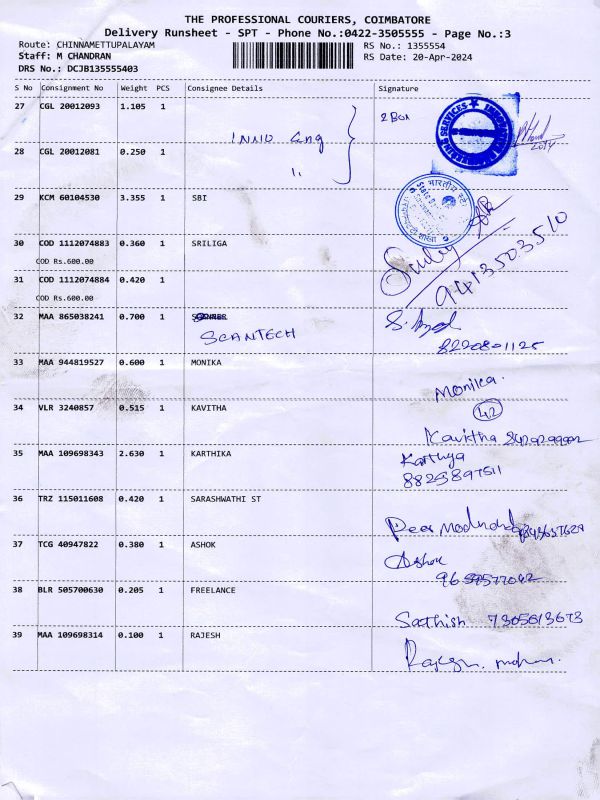 THE PROFESSIONAL COURIERS, COIMBATORE
Delivery Runsheet - SPT - Phone No.:0422-3505555 - Page No.:3
Route: CHINNAMETTUPALAYAM RS No.: 1355554
Staff: M CHANDRAN RS Date: 20-Apr-2024
DRS No.: DCJB135555403
S No Consignment No Weight PCS Consignee Details Signature
27 CGL 20012093 1.105 1 2 Box
INNO Eng
28 CGL 20012081 0.250 1 11
29 KCM 60104530 3.355 1 SBI
30 COD 1112074883 0.360 1 SRILIGA
COD Rs.600.00
9413503510
31 COD 1112074884 0.420 1
COD Rs.600.00
32 MAA 865038241 0.700 1
SCANTECH
8220801125
33 MAA 944819527 0.600 1 MONIKA
Monica.
34 VLR 3240857 0.515 1 KAVITHA
42
Kavitha
35 MAA 109698343 2.630 1 KARTHIKA Karthya
8825897511
36 TRZ 115011608 0.420 1 SARASHWATHI ST
37 TCG 40947822 0.380 1 ASHOK
Ashok
9659577042
38 BLR 505700630 0.205 1 FREELANCE
Sathish 7305613673
39 MAA 109698314 0.100 1 RAJESH